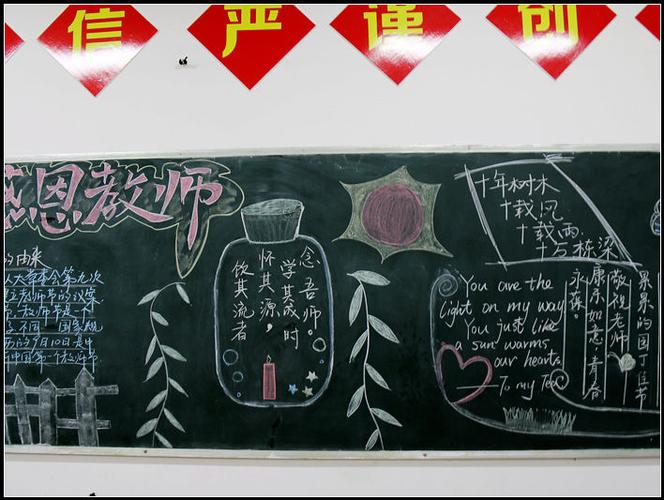 信 严 谨 创
感恩教师
的由来
人大常委会第九次
立教师节的议案
教师节是一
不同 国家规
历的9月10日是中
中国第一个教师节
念吾师。
学其成时
怀其源,
饮其流者
十年树木
十载风
十载雨
十万栋梁
You are the
light on my way
You just like
a sun warms
our hearts
——To my Tea
的园丁佳节
敬祝老师
康乐如意,青春
永葆。